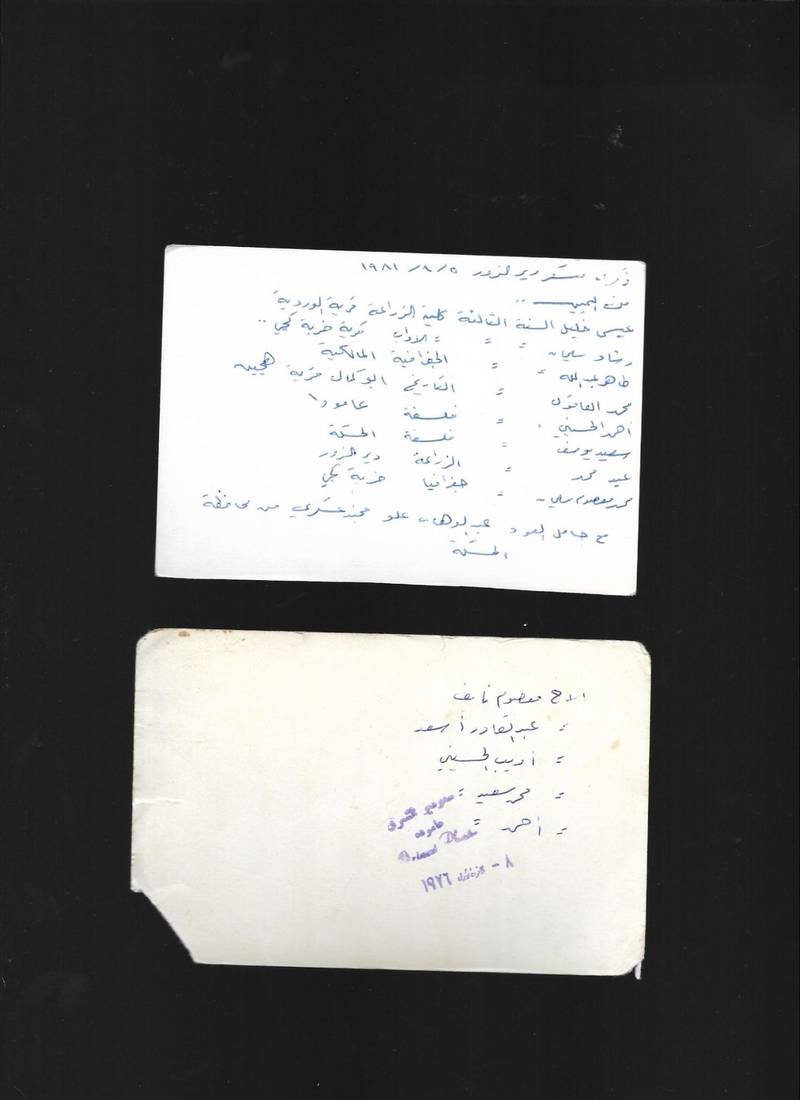 ذكرى معسكر دير الزور ٥/ ٨/ ١٩٨١
من اليمين ..
عيسى خليل السنة الثالثة كلية الزراعة قرية الوردية
رشاد سليمان = = = الاداب قرية خربة كحي ..
طاهر عبدالله = = الجغرافية المالكية
محمد العافون = التاريخ البوكمال قرية هجين
أحمد الحسيني . = فلسفة عامودا
سعيد يوسف = فلسفة الحسكة
عيد محمد = الزراعة دير الزور
محمد معصوم سليمان = جغرافيا خربة كحي
مع حامل العود عبدالوهاب علو مجند عسكري من محافظة
الحسكة
الاخ معصوم نايف
= عبدالقادر أسعد
= أديب الحسيني
= محمد سعيد =
= أحمد =
عامودا
٨ - ١٩٧٦